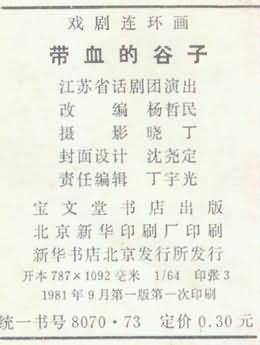 戏剧连环画
带血的谷子
江苏省话剧团演出
改 编 杨哲民
摄 影 晓 丁
封面设计 沈尧定
责任编辑 丁宇光
宝文堂书店出版
北京新华印刷厂印刷
新华书店北京发行所发行
开本787×1092毫米 1/64 印张3
1981年9月第一版第一次印刷
统一书号8070·73 定价0.30元